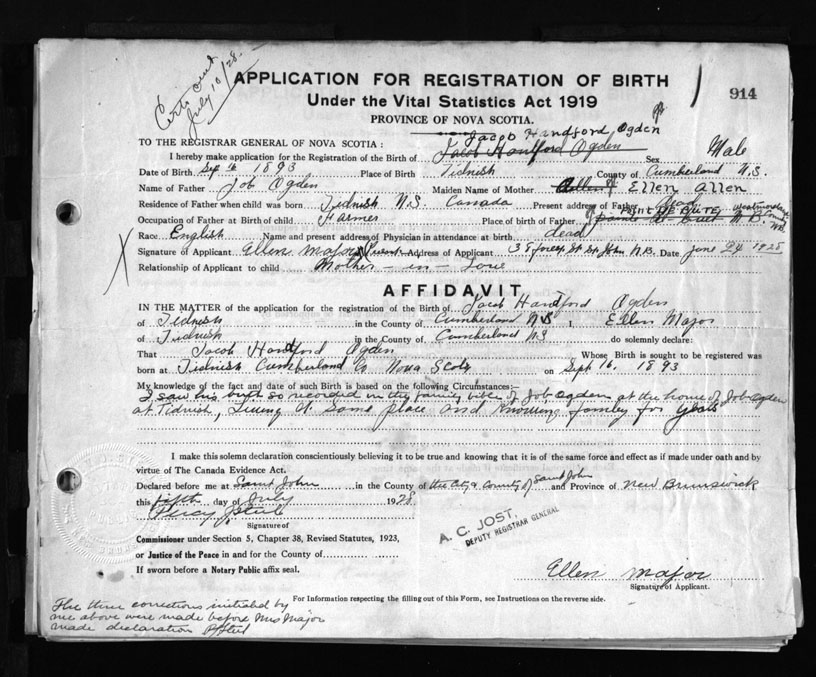 Certs sent
July 10/28.
APPLICATION FOR REGISTRATION OF BIRTH
914
Under the Vital Statistics Act 1919
PROVINCE OF NOVA SCOTIA.
Jacob Handford Ogden
TO THE REGISTRAR GENERAL OF NOVA SCOTIA:
I hereby make application for the Registration of the Birth of Jacob Hantford Ogden Sex Male
Date of Birth Sep 16 1893 Place of Birth Tidnish County of Cumberland N.S.
Name of Father Job Ogden Maiden Name of Mother Ellen Allen
Residence of Father when child was born Tidnish N.S. Canada Present address of Father dead
Occupation of Father at Birth of child Farmer Place of birth of Father POINT DE BUTE Westmorland County N.B.
Race English Name and present address of Physician in attendance at birth dead
Signature of Applicant Ellen Major Present Address of Applicant St John N.B. Date June 24 1928
Relationship of Applicant to child Mother-in-Lowe
AFFIDAVIT
IN THE MATTER of the application for the registration of the Birth of Jacob Handford Ogden
of Tidnish in the County of Cumberland NS I, Ellen Major
of Tidnish in the County of Cumberland NS do solemnly declare:
That Jacob Handford Ogden Whose Birth is sought to be registered was
born at Tidnish Cumberland Co Nova Scotia on Sept 16. 1893
My knowledge of the fact and date of such Birth is based on the following Circumstances:—
I saw his birth so recorded in the family bible of Job Ogden at the home of Job Ogden
at Tidnish, Living at same place and knowing famley for years
I make this solemn declaration conscientiously believing it to be true and knowing that it is of the same force and effect as if made under oath and by
virtue of The Canada Evidence Act.
Declared before me at Saint John in the County of the City & County of Saint John and Province of New Brunswick
this fifth day of July 1928
Signature of
Commissioner under Section 5, Chapter 38, Revised Statutes, 1923,
or Justice of the Peace in and for the County of
If sworn before a Notary Public affix seal.
A. C. JOST,
DEPUTY REGISTRAR GENERAL
Ellen Major
Signature of Applicant.
For Information respecting the filling out of this Form, see Instructions on the reverse side.
The three corrections initialed by
me above were made before Mrs Major
made declaration